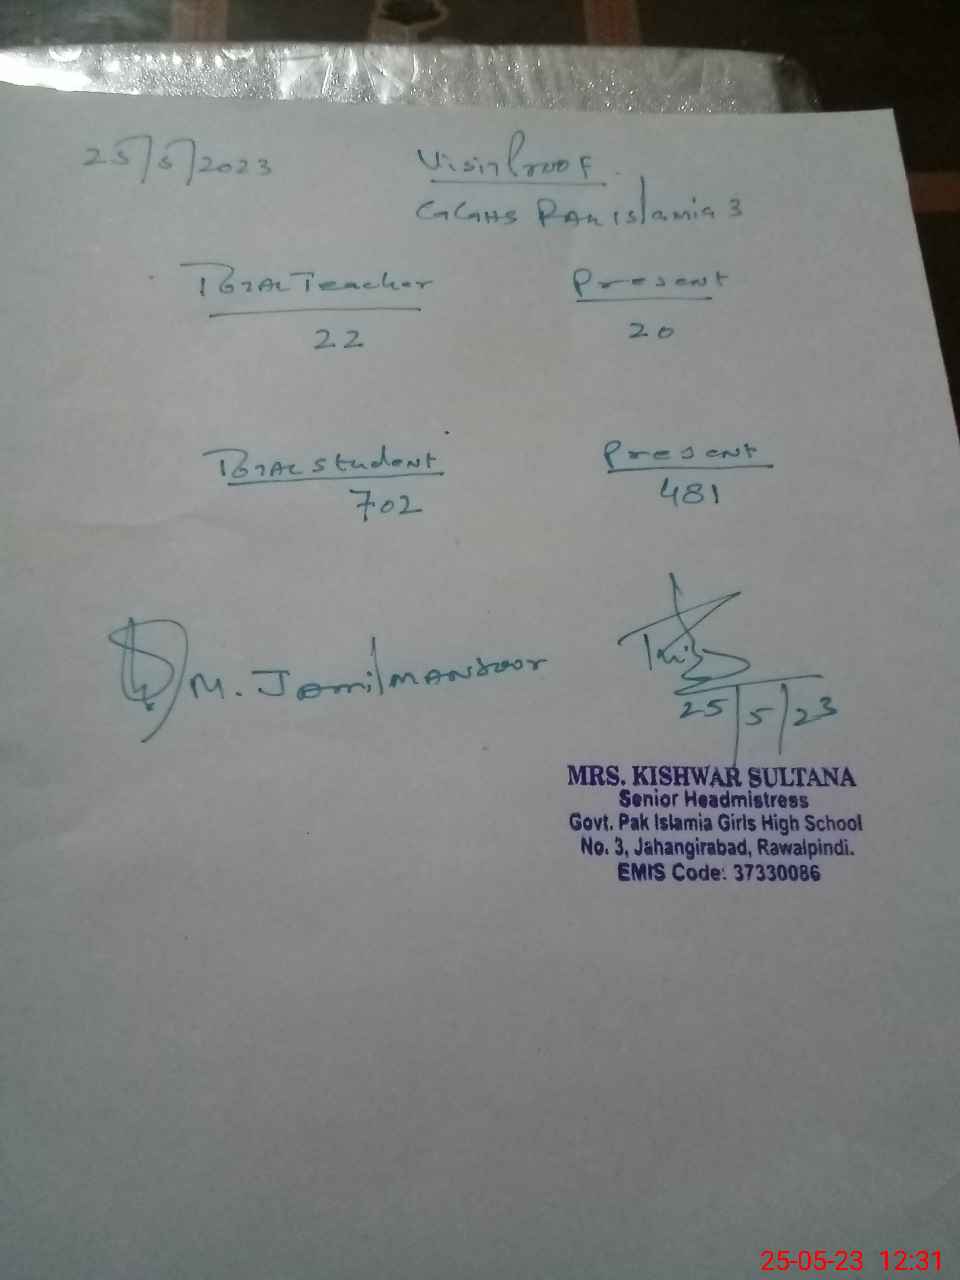 25/5/2023
Visit Proof
GGHS Pak Islamia 3
Total Teacher Present
22 20
Total Student Present
702 481
M. Jamil Mansoor
25/5/23
MRS. KISHWAR SULTANA
Senior Headmistress
Govt. Pak Islamia Girls High School
No. 3, Jahangirabad, Rawalpindi.
EMIS Code: 37330086
25-05-23 12:31